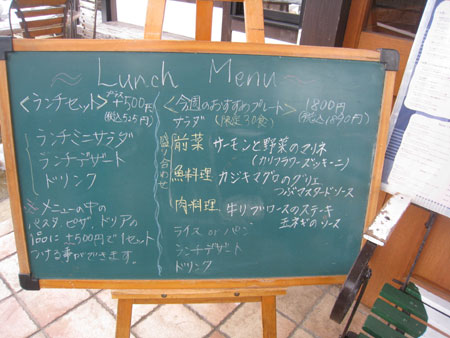 Lunch Menu
<ランチセット> プラス +500円
(税込525円)
ランチミニサラダ
ランチデザート
ドリンク
※メニューの中の
パスタ、ピザ、ドリアの
品に+500円で1セット
つける事ができます。
<今週のおすすめプレート> 1800円
サラダ (限定30食) (税込1890円)
盛り合わせ
前菜 サーモンと野菜のマリネ
(カリフラワー・ズッキーニ)
魚料理 カジキマグロのグリエ
つぶマスタードソース
肉料理 牛リブロースのステーキ
玉ネギのソース
ライス or パン
ランチデザート
ドリンク